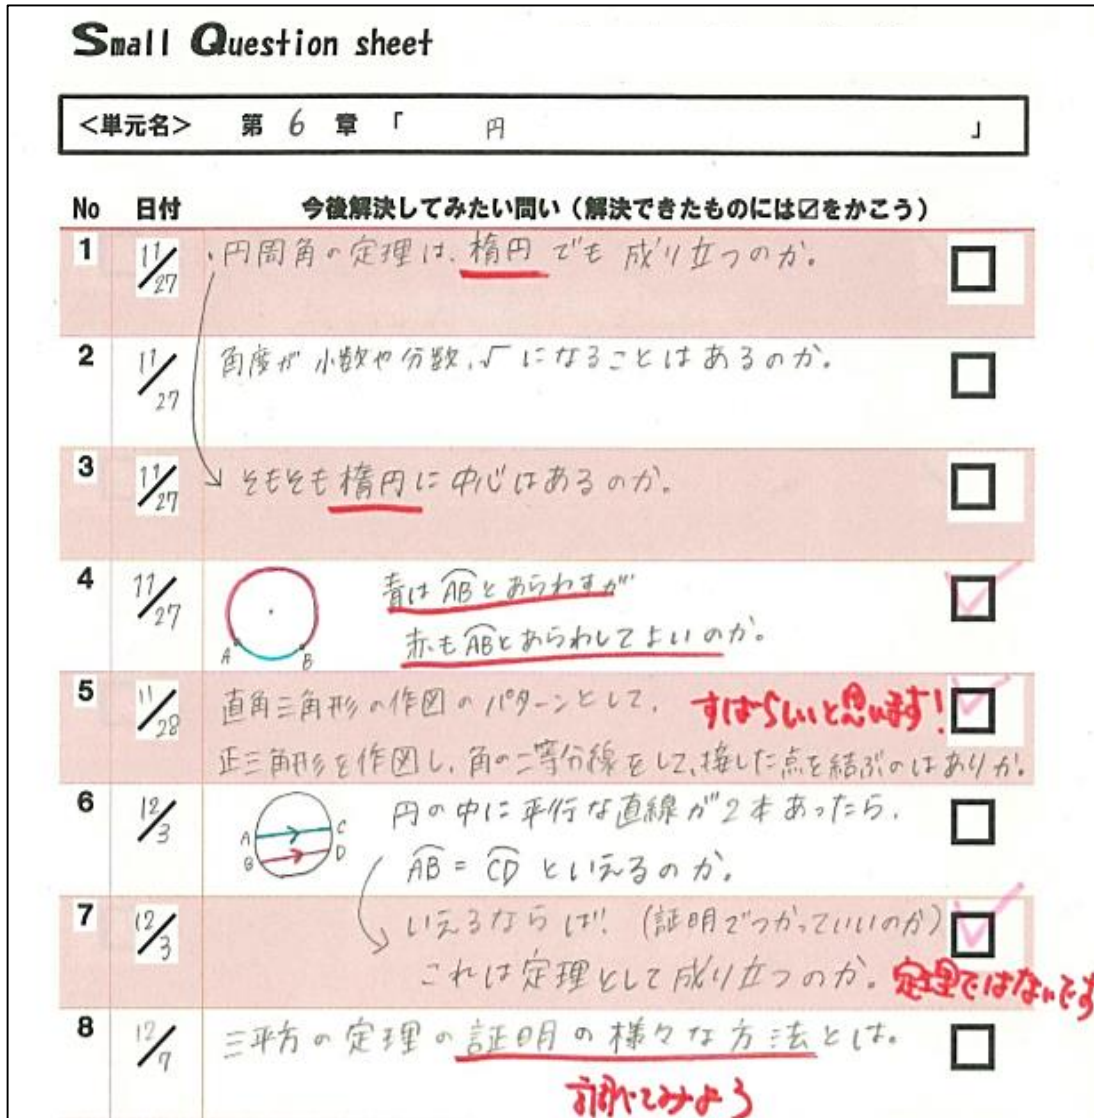 Small Question sheet
<単元名> 第 6 章 「 円 」
No 日付 今後解決してみたい問い(解決できたものには☑をかこう)
1 11/27 ・円周角の定理は、楕円でも成り立つのか。
2 11/27 角度が小数や分数、√になることはあるのか。
3 11/27 そもそも楕円に中心はあるのか。
4 11/27 青は AB とあらわすが
赤も AB とあらわしてよいのか。
A B
5 11/28 直角三角形の作図のパターンとして、 すばらしいと思います!
正三角形を作図し、角の二等分線をして、接した点を結ぶのはありか。
6 12/3 円の中に平行な直線が2本あったら、
A C
B D
AB = CD といえるのか。
7 12/3 いえるならば! (証明でつかっていいのか)
これは定理として成り立つのか。 定理ではないです
8 12/7 三平方の定理の証明の様々な方法とは。
調べてみよう